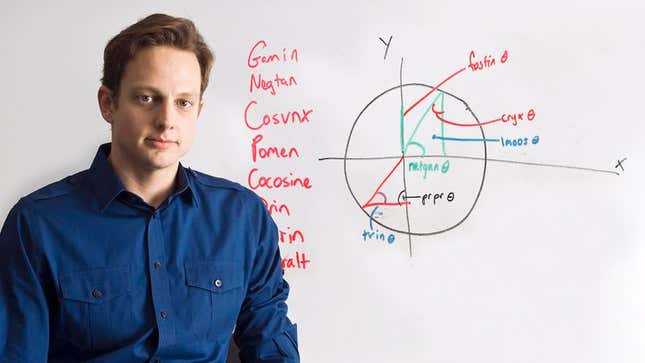 Gamin
Negtan
Cosvnx
Pomen
Cocosine
Y
fostin θ
cryx θ
lmoos θ
x
netgan θ
prpr θ
trin θ